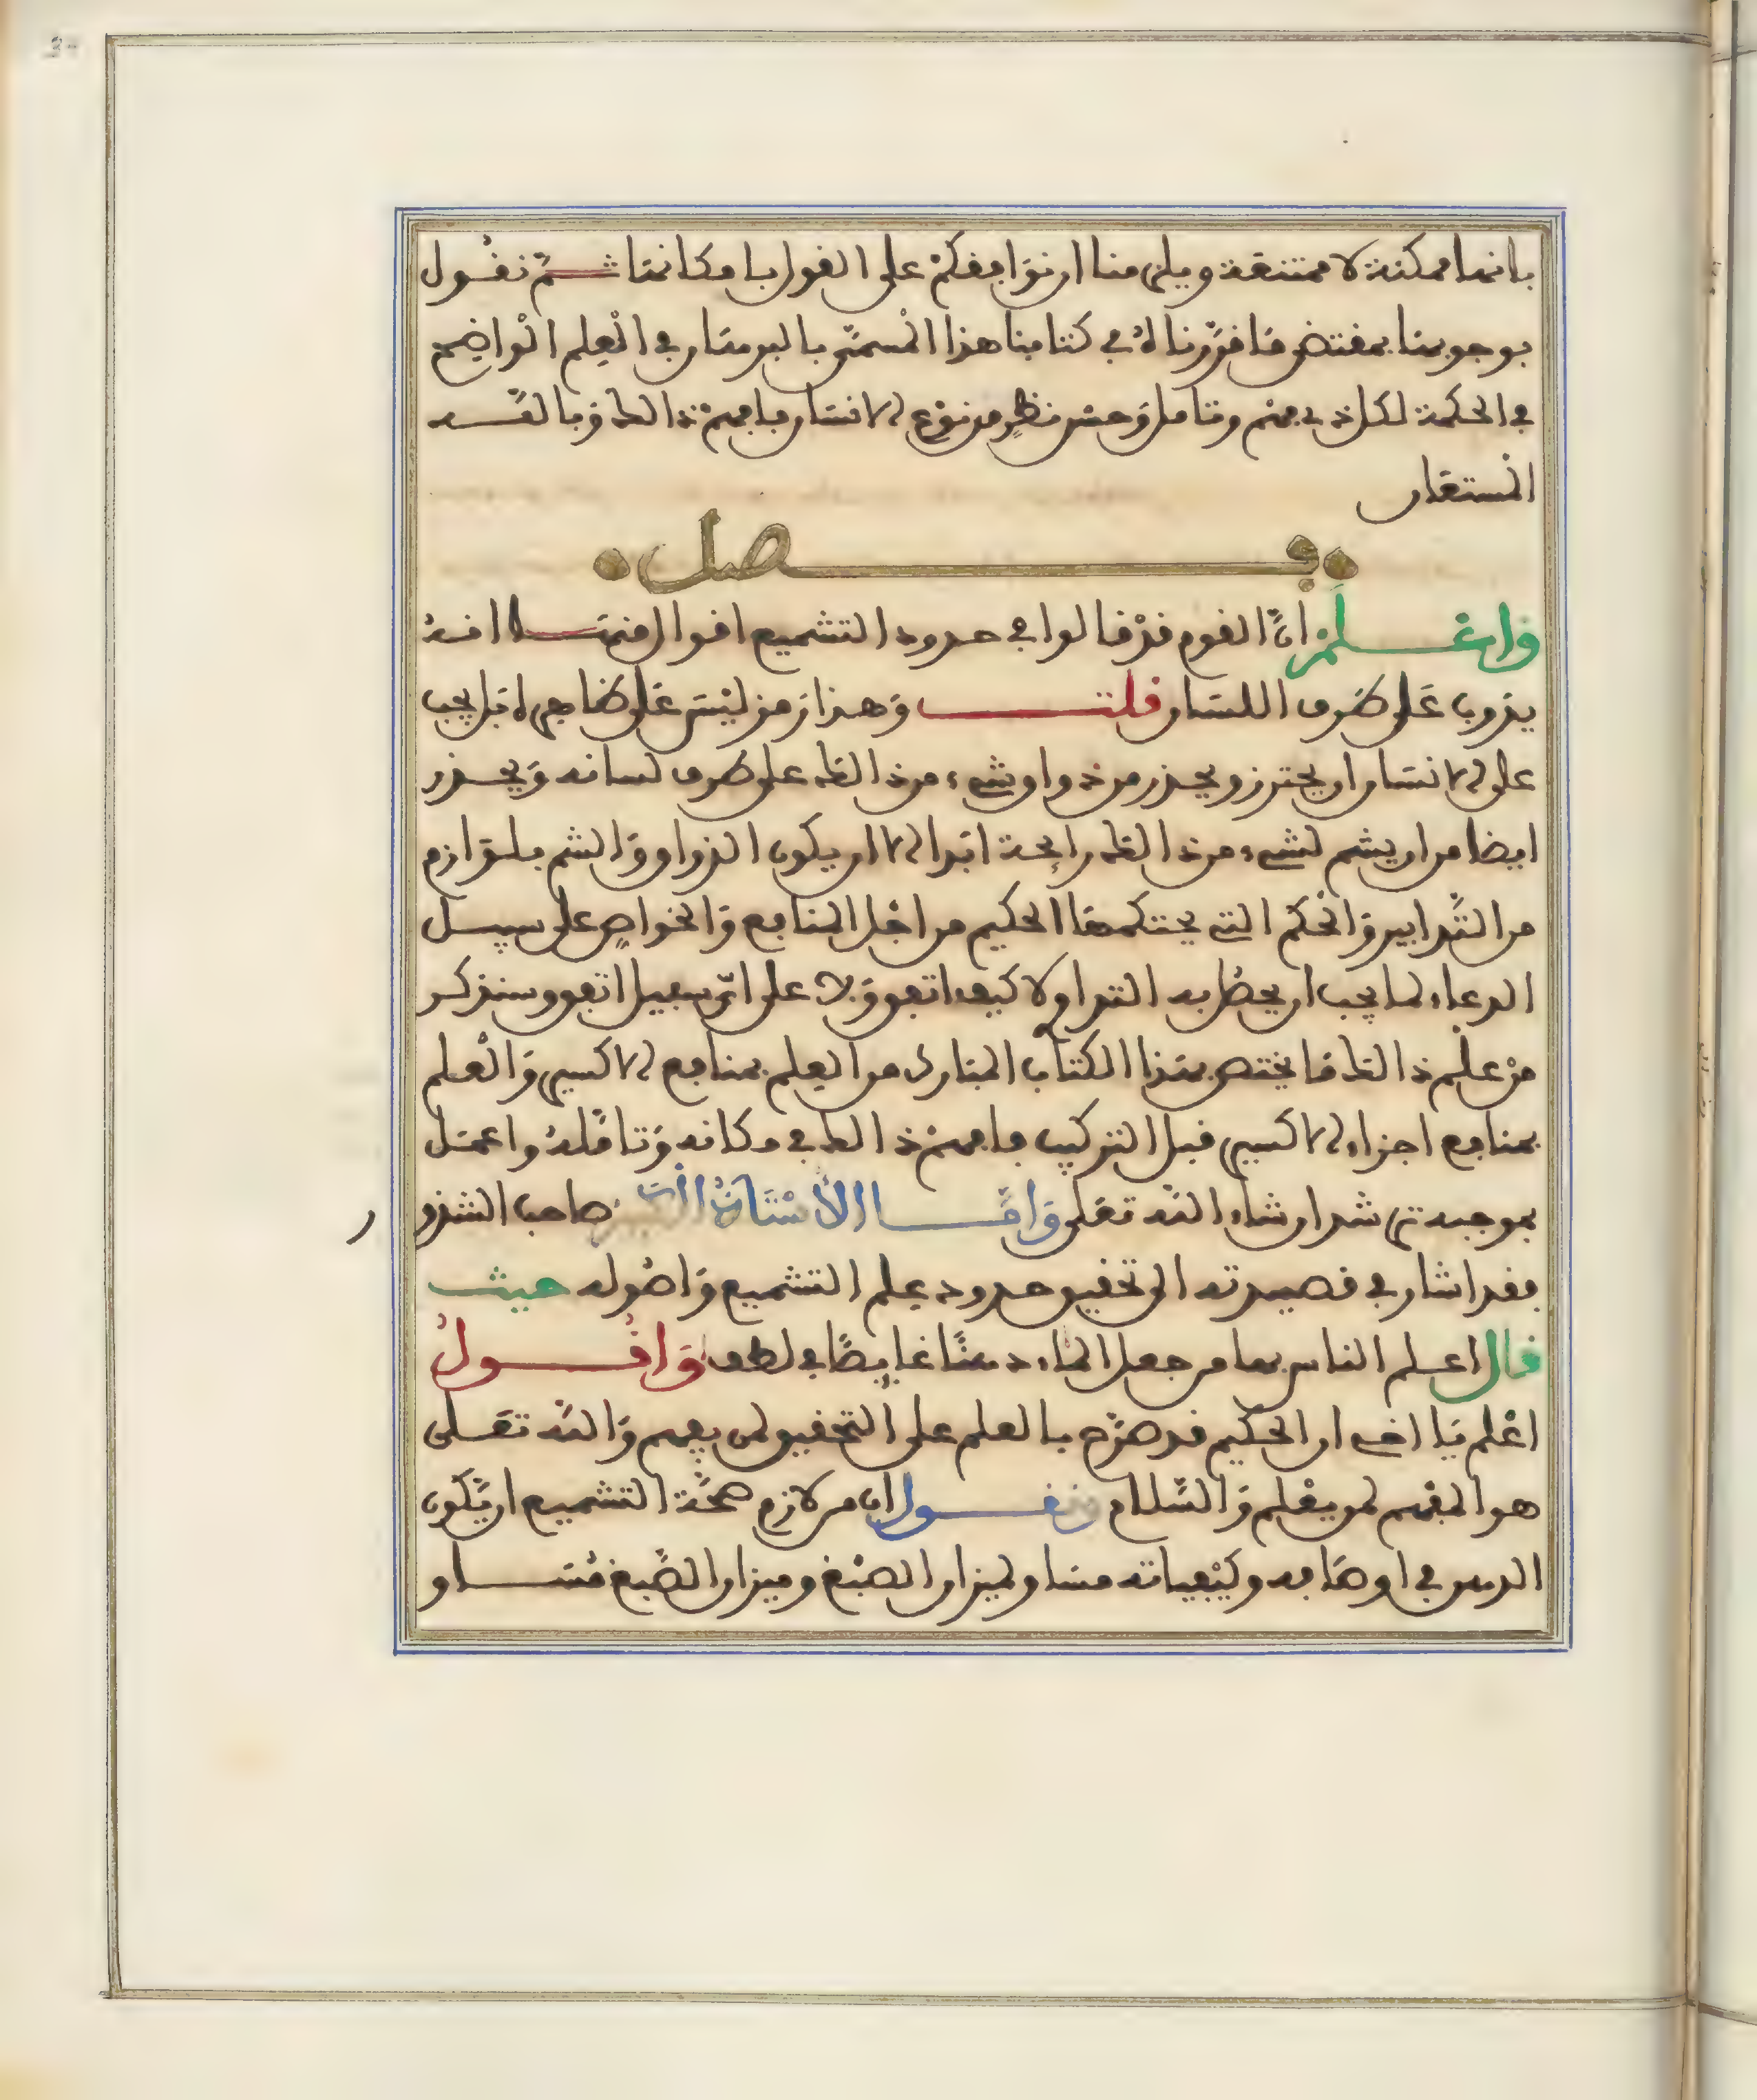 بانها ممكنة لا ممتنعة ويلزمنا ان نوافقكم على القول بامكانها ثم نقول
بوجوبها بمقتضى ما قررناه في كتابنا هذا المسمى بالبرهان في العلم الواضح
في الحكمة لكل ذي فهم وتامل وحسن نظر من نوع الانسان فافهم ذالك وبالله
المستعان
فصل
واعلم ان القوم قد قالوا في حدود التشميع اقوال منها انه
يذوب على طرف اللسان قلت وهذا رمز ليس على ظاهره بل يجب
على الانسان ان يحترز ويحذر من ذواق شيء من ذالك على طرف لسانه ويحذر
ايضا من ان يشم لشيء من ذالك رايحة ابدا الا ان يكون الذواق والشم بلوازم
من التدابير والحكم التي يحتكمها الحكيم من اجل المنافع والخواص على سبيل
الدعاء لما يجب ان يحظ به التداو لا كيف اتفق ولا على اي سبيل اتفق وسنذكر
من علم ذالك ما يختص بهذا الكتاب المبارك من العلم بمنافع الاكسير والعلم
بمنافع اجزاء الاكسير قبل التركيب فافهم ذالك في مكانه وتامله واعمل
بموجبه ترشد ان شاء الله تعلى واما الاستاذ الكبير صاحب الشذور
فقد اشار في قصيدته الى تحقيق حدود علم التشميع واصوله حيث
قال اعلم الناس بها من جعل الماء دهنا غايضا في لطف واقول
اعلم يا اخي ان الحكيم قد صرح بالعلم على التحقيق لمن يفهم والله تعلى
هو المفهم لمن يعلم والسلام ونقول ان من لازم صحة التشميع ان يكون
الدهن في اوصافه وكيفياته مساو لميزان الصبغ وميزان الصبغ مساو